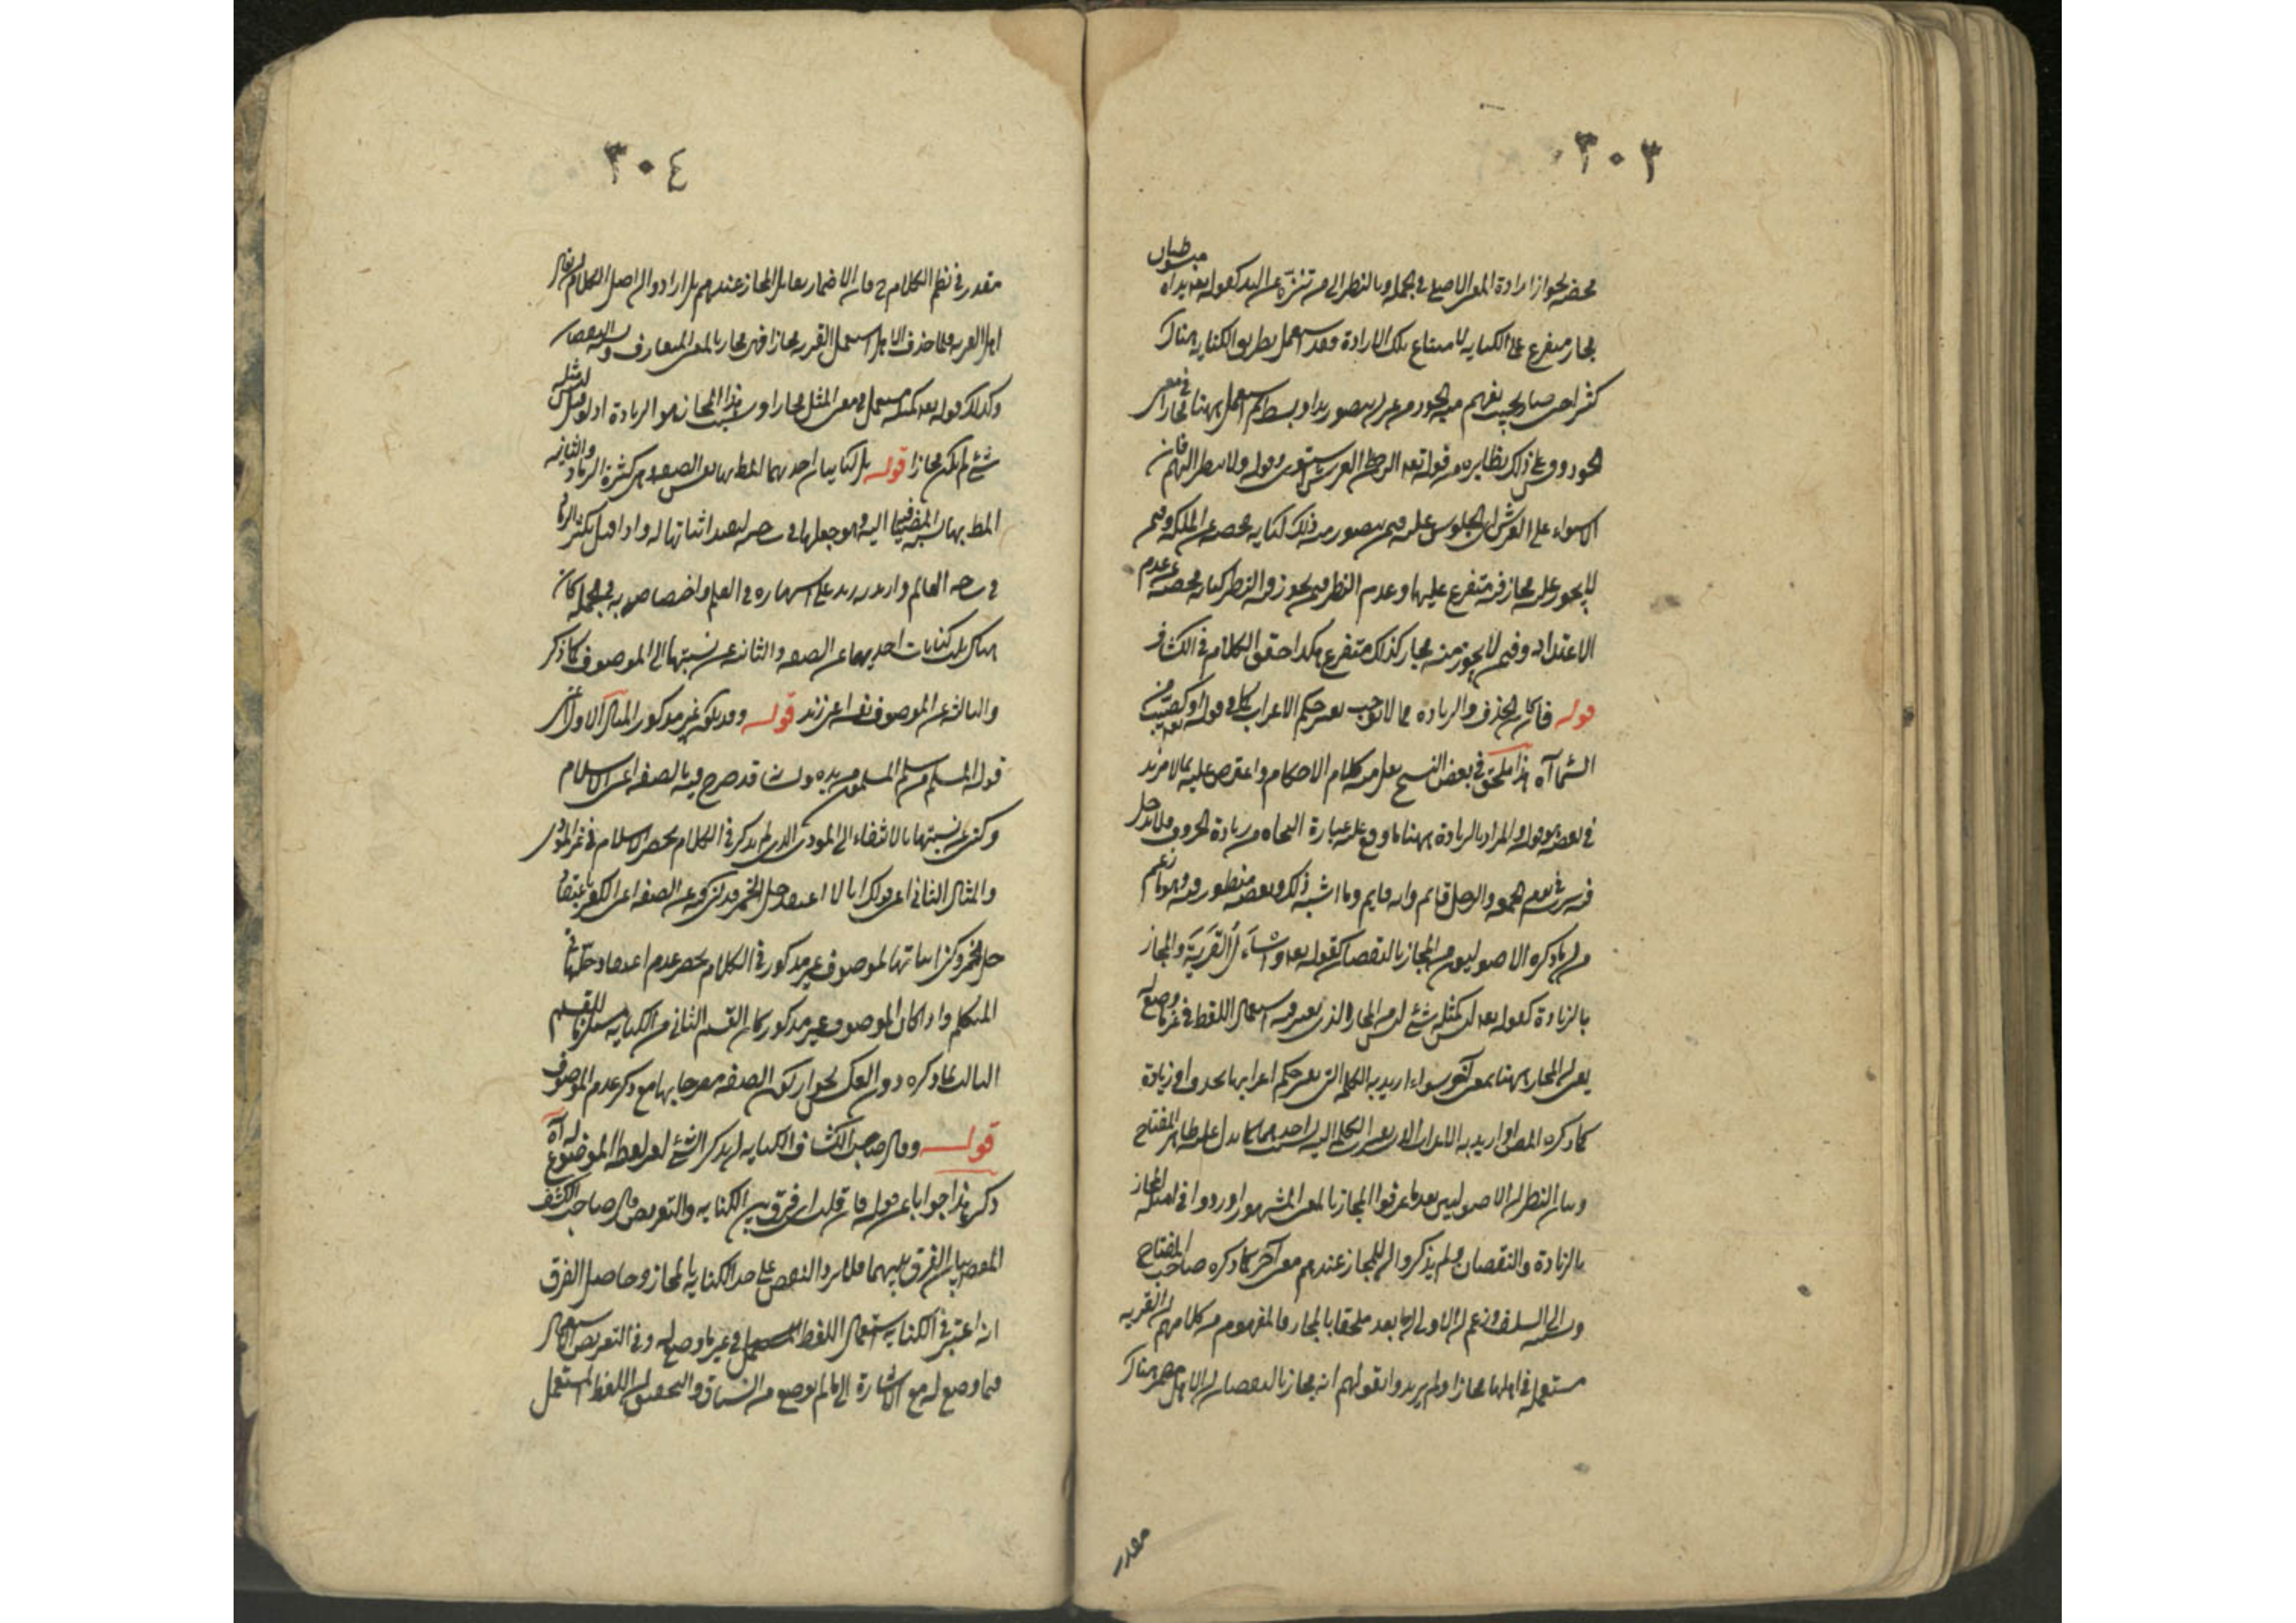 ٣٠٣
محضة لجواز ارادة المعنى الاصلي في الجملة وبالنظر الى من تنزه عن اليد كقوله تعالى بل يداه مبسوطتان
مجاز متفرع على الكناية لامتناع تلك الارادة فقد استعمل بطريق الكناية هناك
كثيرا حتى صار بحيث يفهم منه الجود من غير ان يتصور يد او بسط ثم استعمل ههنا مجازا في معنى
الجود وقس على ذلك نظايره من قوله تعالى الرحمن على العرش استوى وقوله ولا ينظر اليهم فان
الاستواء على العرش اي الجلوس عليه فيمن يتصور منه ذلك كناية محضة عن الملك وفيمن
لا يجوز عليه مجاز متفرع عليها وعدم النظر فيمن يجوز منه النظر كناية محضة عن عدم
الاعتداد وفيمن لا يجوز منه مجاز كذلك متفرع هكذا حقق الكلام في الكشاف
قوله فان كان الحذف والزيادة مما لا يوجب تغير حكم الاعراب كما في قوله تعالى او كصيب من
السماء آه هذا ملحق في بعض النسخ نقل من كلام الاحكام واعترض عليه بما لا مزيد
في بعضه وقوله المراد بالزيادة ههنا ما وقع عليه عبارة النحاة من زيادة الحروف فلا يدخل
فيه سرت في يوم الجمعة والرجل قائم وانه قايم وما اشبه ذلك وبعضه منظور فيه وهو ما زعم
من ان ما ذكره الاصوليون من المجاز بالنقصان كقوله تعالى واسأل القرية والمجاز
بالزيادة كقوله تعالى ليس كمثله شئ ليس من المجاز الذي يعتبر فيه استعمال اللفظ في غير ما وضع له
يعني ان المجاز ههنا بمعنى آخر سواء اريد به الكلمة التي تغير حكم اعرابها بحذف او زيادة
كما ذكره المص او اريد به الاعراب الذي تغيرت الكلمة اليه بسبب احدهما كما يدل عليه ظاهر المفتاح
وبيان النظر ان الاصوليين بعد ما عرفوا المجاز بالمعنى المشهور اوردوا في امثلة المجاز
بالزيادة والنقصان ولم يذكروا ان للمجاز عندهم معنى آخر كما ذكره صاحب المفتاح
ونسبه الى السلف وزعم ان الاولى ان يعد ملحقا بالمجاز فالمفهوم من كلامهم ان القرية
مستعملة في اهلها مجازا ولم يريدوا بقولهم انه مجاز بالنقصان ان الاهل مضمر هناك
مقدر
٣٠٤
مقدر في نظم الكلام ح فان الاضمار يقابل المجاز عندهم بل ارادوا ان اصل الكلام ان يقال
اهل القرية فلما حذف الاهل استعمل القرية مجازا فهي مجاز بالمعنى المتعارف وسببه النقصان
وكذلك قوله تعالى كمثله مستعمل في معنى المثل مجازا وسبب هذا المجاز هو الزيادة اذ لو قيل ليس مثله
شئ لم يكن مجازا قوله بل كنايتان احديهما المط بها نفس الصفة وهي كثرة الرماد والثانية
المط بها نسبة المضيافية اليه وهو جعلها في ساحته ليفيد اثباتها له واذا قيل يكثر الرماد
في ساحة العالم واريد به زيد بناء على اشتهاره في العلم واختصاصه به في الجملة كان
هناك ثلث كنايات احديها عن الصفة والثانية عن نسبتها الى الموصوف كما ذكر
والثالثة عن الموصوف نفسه اعني زيد قوله وقد يكون غير مذكور المثال الاول اي
قوله المسلم من سلم المسلمون من يده ولسانه قد صرح فيه بالصفة اعني الاسلام
وكني عن نسبتها بالانتفاء الى المؤذي الذي لم يذكر في الكلام بحصر الاسلام في غير المؤذي
والمثال الثاني اعني قولك انا لا اعتقد حل الخمر قد كني فيه عن الصفة اعني الكفر باعتقاد
حل الخمر وكني اثباتها لموصوف غير مذكور في الكلام بحصر عدم اعتقاد حلها في
المتكلم واذا كان الموصوف غير مذكور كان القسم الثاني من الكناية مستلزما للقسم
الثالث كما ذكره دون العكس لجواز ان يكون الصفة مصرحا بها مع ذكر عدم الموصوف
قوله وقال صاحب الكشاف الكناية ان يذكر الشئ لغير لفظه الموضوع له آه
ذكر هذا جوابا عن قوله فان قلت اي فرق بين الكناية والتعريض قال صاحب الكشف
المقصد بيان الفرق بينهما فلا يرد النقض على حد الكناية بالمجاز وحاصل الفرق
انه اعتبر في الكناية استعمال اللفظ في غير ما وضع له وفي التعريض استعماله
فيما وضع له مع الاشارة الى ما لم يوضع له من السياق والتحقيق ان اللفظ المستعمل